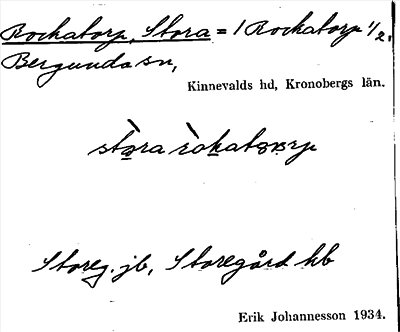 Rockatorp, Stora = 1 Rockatorp 1/2,
Bergunda sn,
Kinnevalds hd, Kronobergs län.
stora rokatorp
Storeg. jb, Storegård hb
Erik Johannesson 1934.